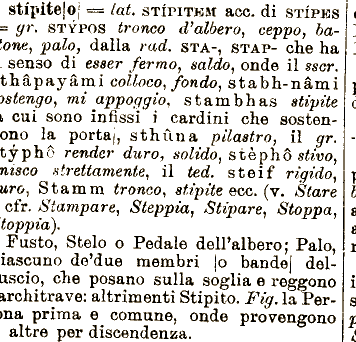 stípite|o| = lat. STÍPITEM acc. di STÍPES
= gr. STÝPOS tronco d'albero, ceppo, ba-
tone, palo, dalla rad. STA-, STAP- che ha
senso di esser fermo, saldo, onde il sscr.
thâpayâmi colloco, fondo, stabh-nâmi
ostengo, mi appoggio, stambhas stipite
a cui sono infissi i cardini che sosten-
ono la porta|, sthûna pilastro, il gr.
týphô render duro, solido, stèphô stivo,
nisco strettamente, il ted. steif rigido,
uro, Stamm tronco, stipite ecc. (v. Stare
cfr. Stampare, Steppia, Stipare, Stoppa,
toppia).
Fusto, Stelo o Pedale dell'albero; Palo,
iascuno de'due membri |o bande| del-
uscio, che posano sulla soglia e reggono
architrave: altrimenti Stipito. Fig. la Per-
ona prima e comune, onde provengono
altre per discendenza.